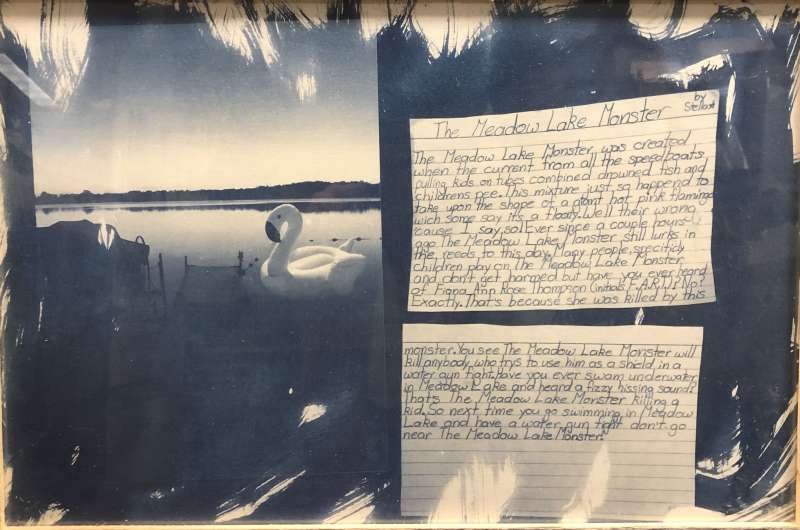 The Meadow Lake Monster
by
Stella
The Meadow Lake Monster, was created
when the current from all the speedboats
pulling kids on tubes combined drowned fish and
childrens pee. This mixture just so happened to
take upon the shape of a giant hot pink flamingo
wich some say it's a floaty. Well their wrong
'cause I say so! Ever since a couple hours
ago The Meadow Lake Monster still lurks in
the reeds to this day. Many people, specificly
children play on The Meadow Lake Monster
and don't get harmed but have you ever heard
of Fiona Ann Rose Thompson (initials F.A.R.T.)? No?
Exactly. That's because she was killed by this
monster. You see The Meadow Lake Monster will
kill anybody who trys to use him as a shield in a
water gun fight. Have you ever swam underwater
in Meadow Lake and heard a fizzy hissing sound?
Thats The Meadow Lake Monster killing a
kid. So next time you go swimming in Meadow
Lake and have a water gun fight don't go
near The Meadow Lake Monster.